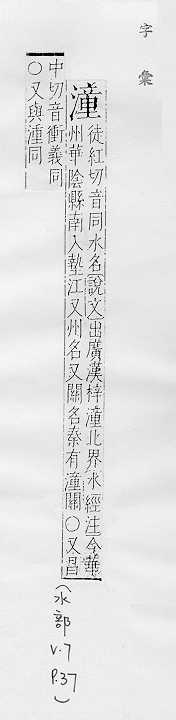 字彙
潼 徒紅切音同水名說文出廣漢梓潼北界水經注今華
州華陰縣南入墊江又州名又關名秦有潼關○又昌
中切音衝義同
○又與湩同
(水部
V.7
P.37)